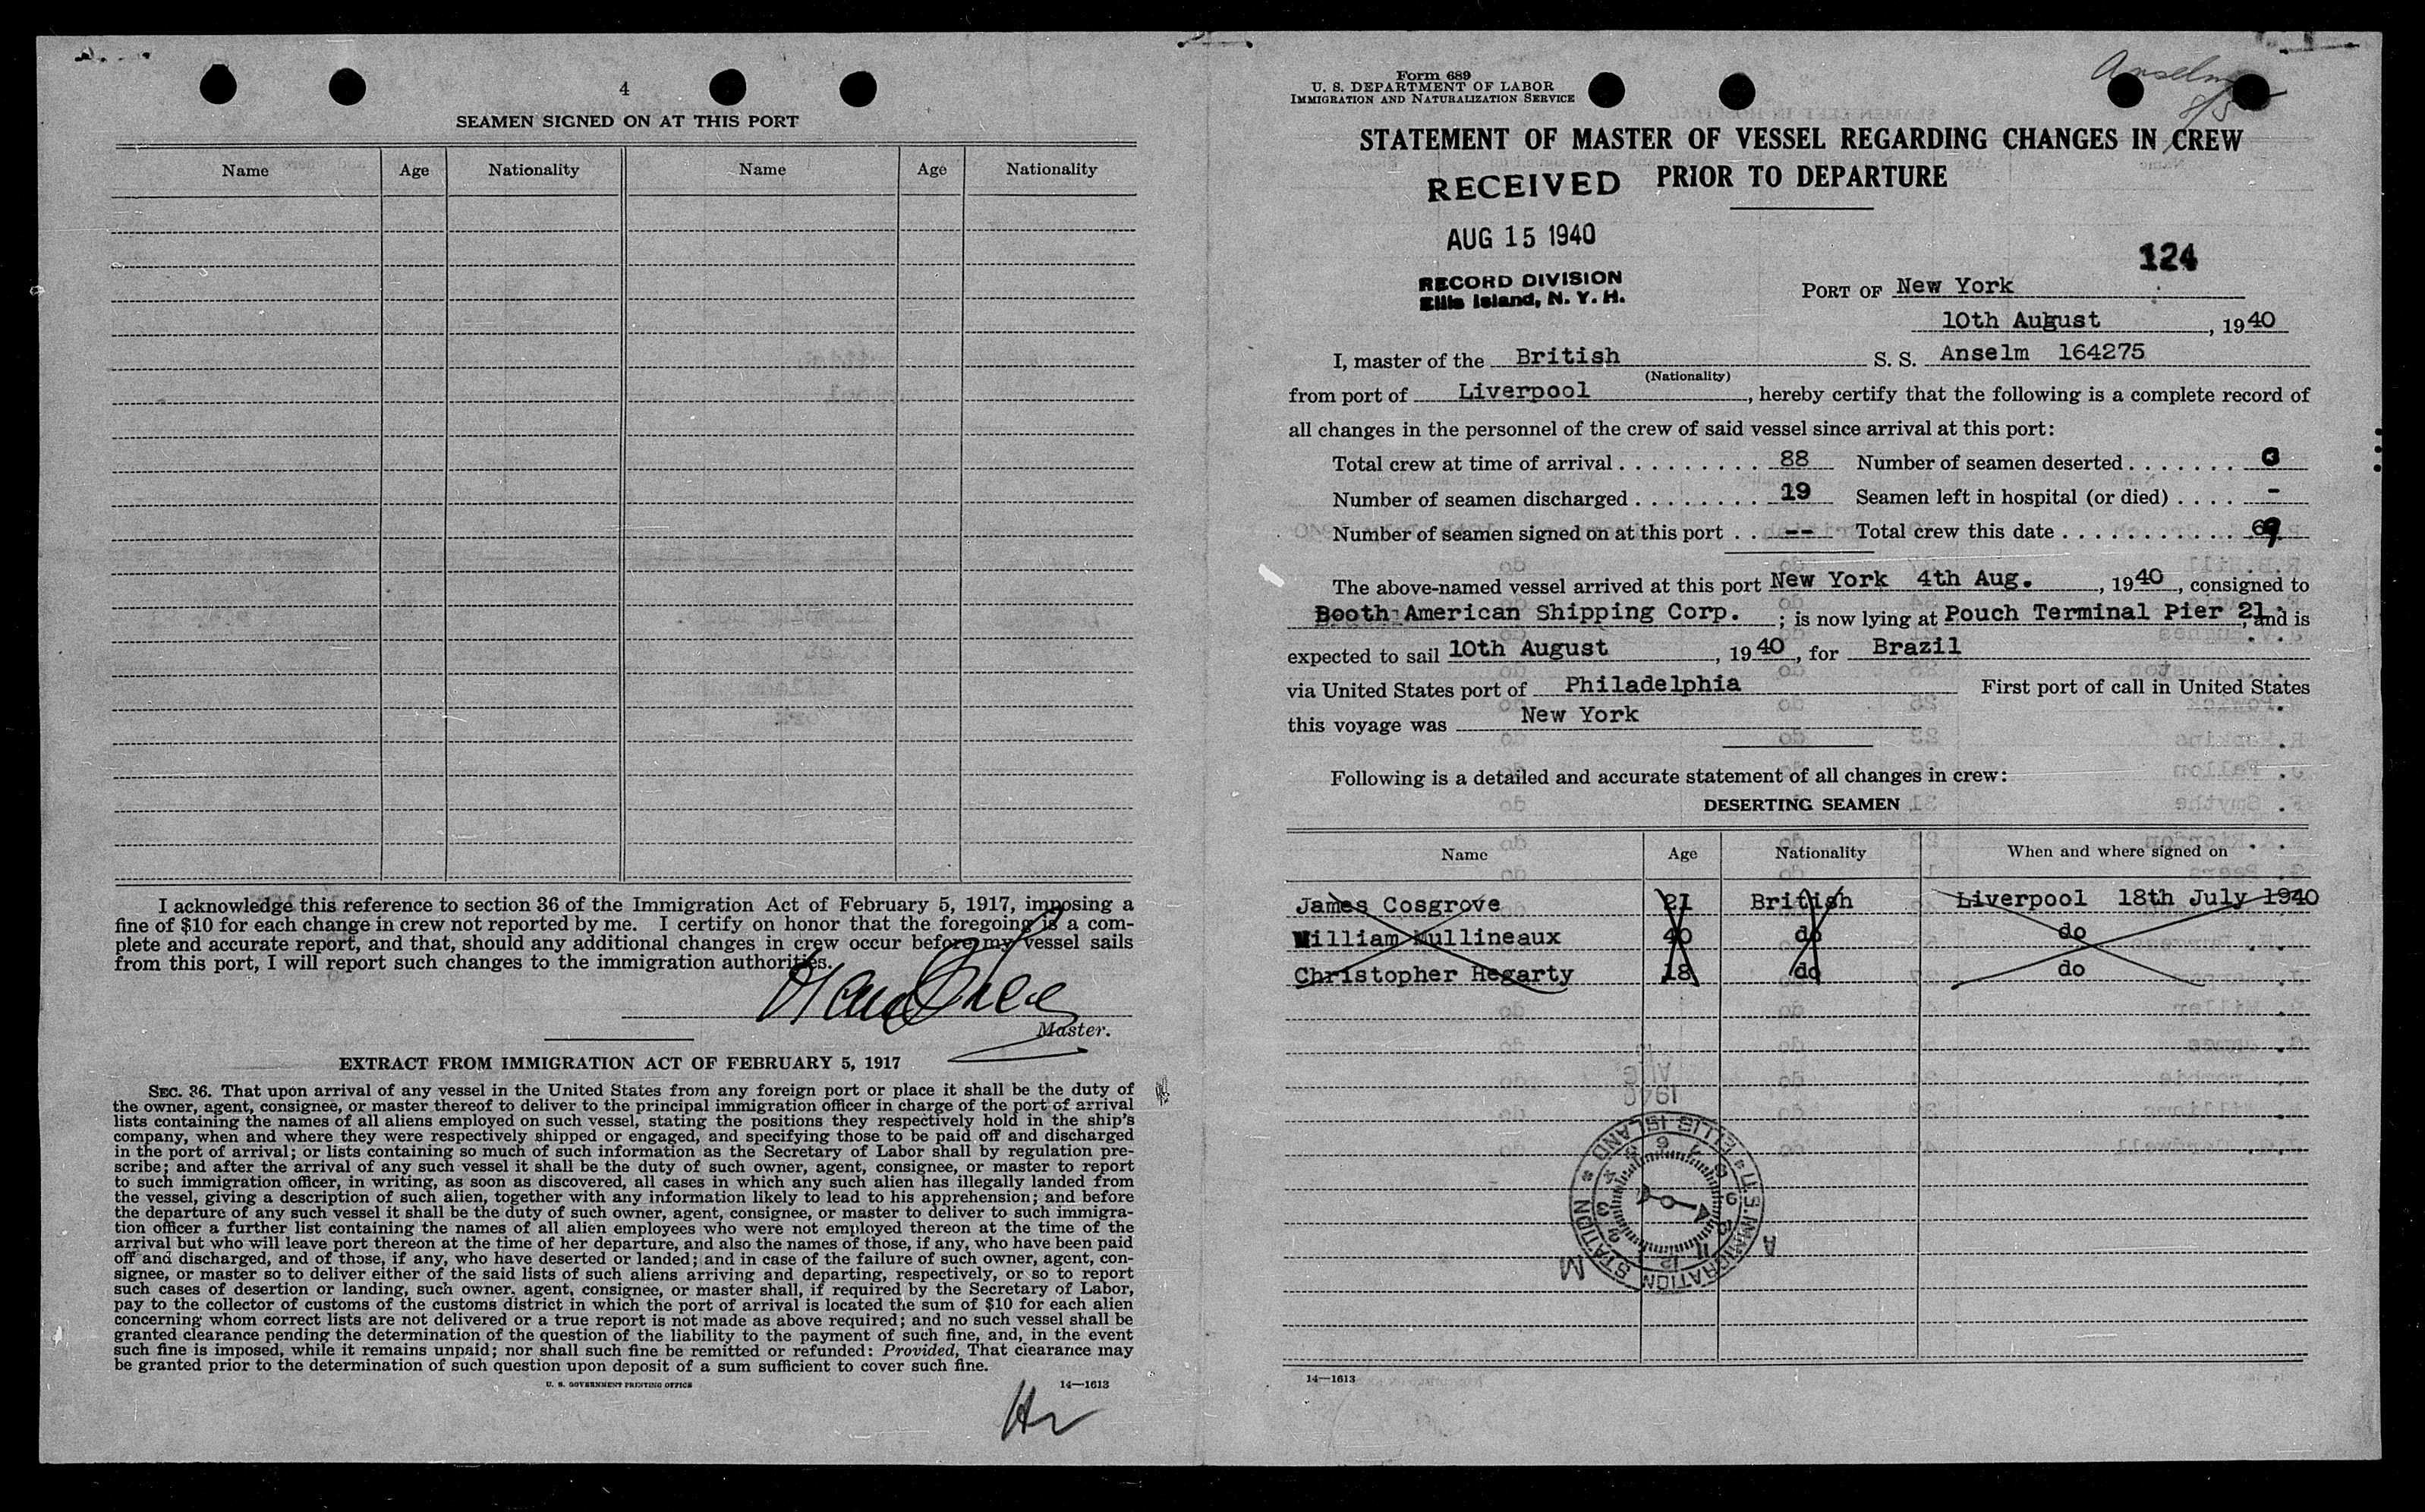 4
SEAMEN SIGNED ON AT THIS PORT
Name Age Nationality Name Age Nationality
I acknowledge this reference to section 36 of the Immigration Act of February 5, 1917, imposing a
fine of $10 for each change in crew not reported by me. I certify on honor that the foregoing is a com-
plete and accurate report, and that, should any additional changes in crew occur before my vessel sails
from this port, I will report such changes to the immigration authorities.
Master.
EXTRACT FROM IMMIGRATION ACT OF FEBRUARY 5, 1917
SEC. 36. That upon arrival of any vessel in the United States from any foreign port or place it shall be the duty of
the owner, agent, consignee, or master thereof to deliver to the principal immigration officer in charge of the port of arrival
lists containing the names of all aliens employed on such vessel, stating the positions they respectively hold in the ship's
company, when and where they were respectively shipped or engaged, and specifying those to be paid off and discharged
in the port of arrival; or lists containing so much of such information as the Secretary of Labor shall by regulation pre-
scribe; and after the arrival of any such vessel it shall be the duty of such owner, agent, consignee, or master to report
to such immigration officer, in writing, as soon as discovered, all cases in which any such alien has illegally landed from
the vessel, giving a description of such alien, together with any information likely to lead to his apprehension; and before
the departure of any such vessel it shall be the duty of such owner, agent, consignee, or master to deliver to such immigra-
tion officer a further list containing the names of all alien employees who were not employed thereon at the time of the
arrival but who will leave port thereon at the time of her departure, and also the names of those, if any, who have been paid
off and discharged, and of those, if any, who have deserted or landed; and in case of the failure of such owner, agent, con-
signee, or master so to deliver either of the said lists of such aliens arriving and departing, respectively, or so to report
such cases of desertion or landing, such owner, agent, consignee, or master shall, if required by the Secretary of Labor,
pay to the collector of customs of the customs district in which the port of arrival is located the sum of $10 for each alien
concerning whom correct lists are not delivered or a true report is not made as above required; and no such vessel shall be
granted clearance pending the determination of the question of the liability to the payment of such fine, and, in the event
such fine is imposed, while it remains unpaid; nor shall such fine be remitted or refunded: Provided, That clearance may
be granted prior to the determination of such question upon deposit of a sum sufficient to cover such fine.
U. S. GOVERNMENT PRINTING OFFICE 14—1613
Form 689
U. S. DEPARTMENT OF LABOR
IMMIGRATION AND NATURALIZATION SERVICE
Anselm
8/5
STATEMENT OF MASTER OF VESSEL REGARDING CHANGES IN CREW
PRIOR TO DEPARTURE
RECEIVED
AUG 15 1940
RECORD DIVISION
Ellis Island, N. Y. H.
124
PORT OF New York
10th August, 1940
I, master of the British S. S. Anselm 164275
(Nationality)
from port of Liverpool, hereby certify that the following is a complete record of
all changes in the personnel of the crew of said vessel since arrival at this port:
Total crew at time of arrival . . . . . . . . . 88 Number of seamen deserted . . . . . . . 0
Number of seamen discharged . . . . . . . . 19 Seamen left in hospital (or died) . . . . -
Number of seamen signed on at this port . . -- Total crew this date . . . . . . . . . . . 69
The above-named vessel arrived at this port New York 4th Aug., 1940, consigned to
Booth American Shipping Corp. ; is now lying at Pouch Terminal Pier 21, and is
expected to sail 10th August, 1940, for Brazil
via United States port of Philadelphia First port of call in United States
this voyage was New York
Following is a detailed and accurate statement of all changes in crew:
DESERTING SEAMEN
Name Age Nationality When and where signed on
James Cosgrove 21 British Liverpool 18th July 1940
William Mullineaux 40 do do
Christopher Hegarty 18 do do
1940
U.S. IMMIGRATION STATION * ELLIS ISLAND *
A M
14—1613